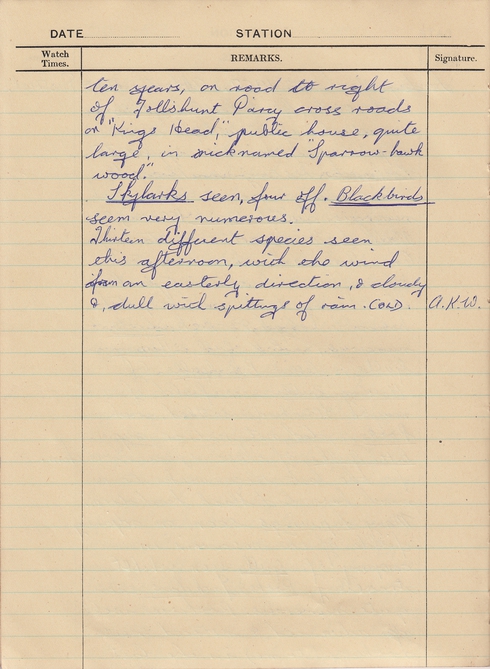 DATE STATION
Watch Times. REMARKS. Signature.
ten years, on road to right
of Tollshunt Darcy cross roads
or "Kings Head", public house, quite
large, in nicknamed "Sparrow-hawk
wood."
Skylarks seen, four off. Blackbirds
seem very numerous.
Thirteen different species seen
this afternoon, with the wind
from an easterly direction, & cloudy
&, dull with spittings of rain. COLD. A.K.W.